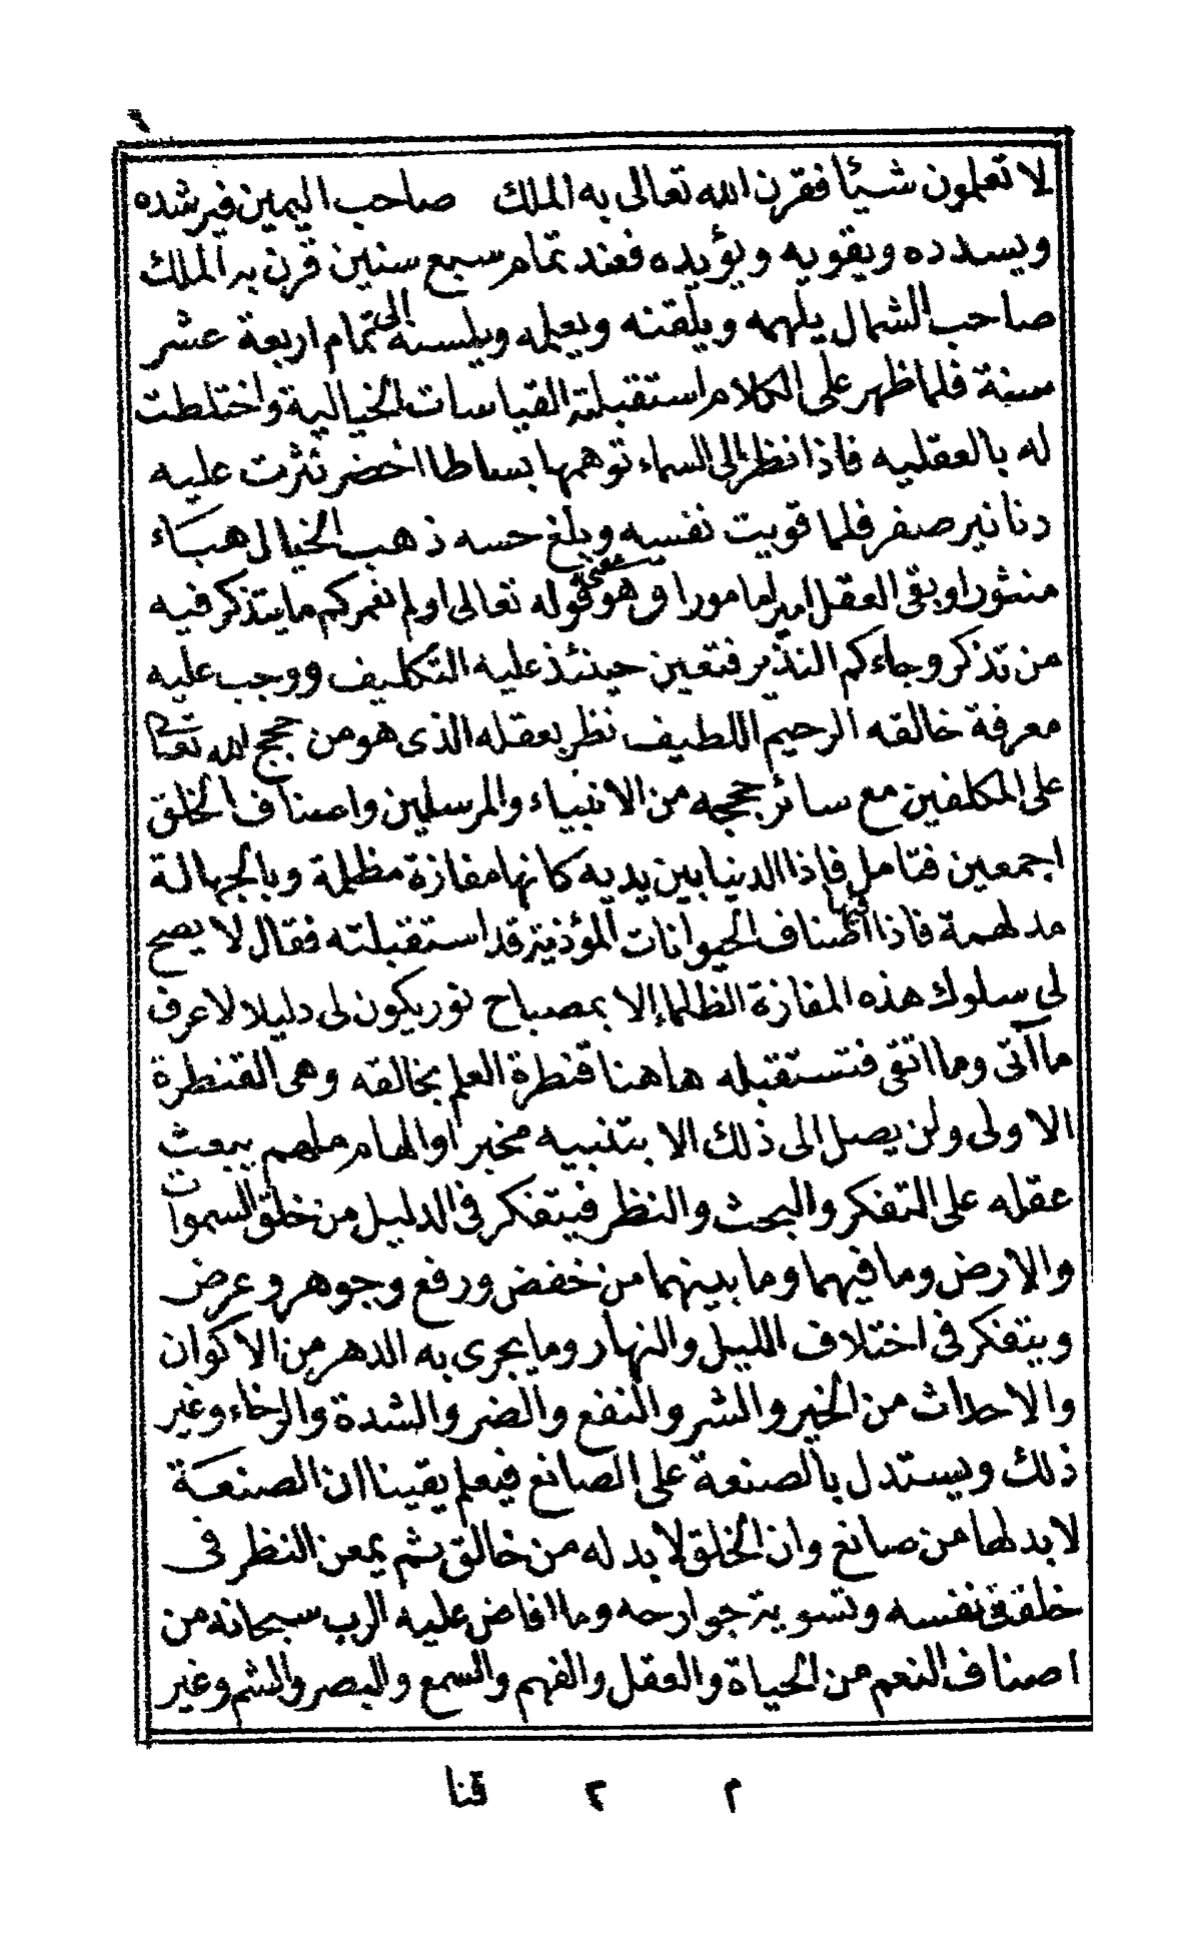 ٩
لا تعلمون شيئا فقرن الله تعالى به الملك صاحب اليمين فيرشده
ويسدده ويقويه ويؤيده فعند تمام سبع سنين قرن به الملك
صاحب الشمال يلهمه ويلقنه ويعلمه ويلسنه الى تمام اربعة عشر
سنة فلما ظهر على الكلام استقبلته القياسات الخيالية واختلطت
له بالعقليه فاذا نظر الى السماء توهمها بساطا اخضر نثرت عليه
دنانير صفر فلما قويت نفسه وبلغ حسه ذهب الخيال هباء
منثورا وبقى العقل اميرا مامورا وهو معنى قوله تعالى اولم نعمركم ما يتذكر فيه
من تذكر وجاءكم النذير فتعين حينئذ عليه التكليف ووجب عليه
معرفة خالقه الرحيم اللطيف نظر بعقله الذى هو من حجج الله تعالى
على المكلفين مع سائر حججه من الانبياء والمرسلين واصناف الخلق
اجمعين فتامل فاذا الدنيا بين يديه كانها مفازة مظلمة وبالجهالة
مدلهمة فاذا فيها اصناف الحيوانات المؤذية قد استقبلته فقال لا يصح
لى سلوك هذه المفازة الظلما إلا بمصباح نور يكون لى دليلا لاعرف
ما آتى وما اتقى فتستقبله هاهنا قنطرة العلم بخالقه وهى القنطرة
الاولى ولن يصل الى ذلك الا بتنبيه مخبر او الهام ملهم يبعث
عقله على التفكر والبحث والنظر فيتفكر فى الدليل من خلق السموات
والارض وما فيهما وما بينهما من خفض ورفع وجوهر وعرض
ويتفكر فى اختلاف الليل والنهار وما يجرى به الدهر من الاكوان
والاحداث من الخير والشر والنفع والضر والشدة والرخاء وغير
ذلك ويستدل بالصنعة على الصانع فيعلم يقينا ان الصنعة
لا بد لها من صانع وان الخلق لا بد له من خالق ثم يمعن النظر فى
خلقة نفسه وتسوية جوارحه وما افاض عليه الرب سبحانه من
اصناف النعم من الحياة والعقل والفهم والسمع والبصر والشم وغير
م ٢ قنا